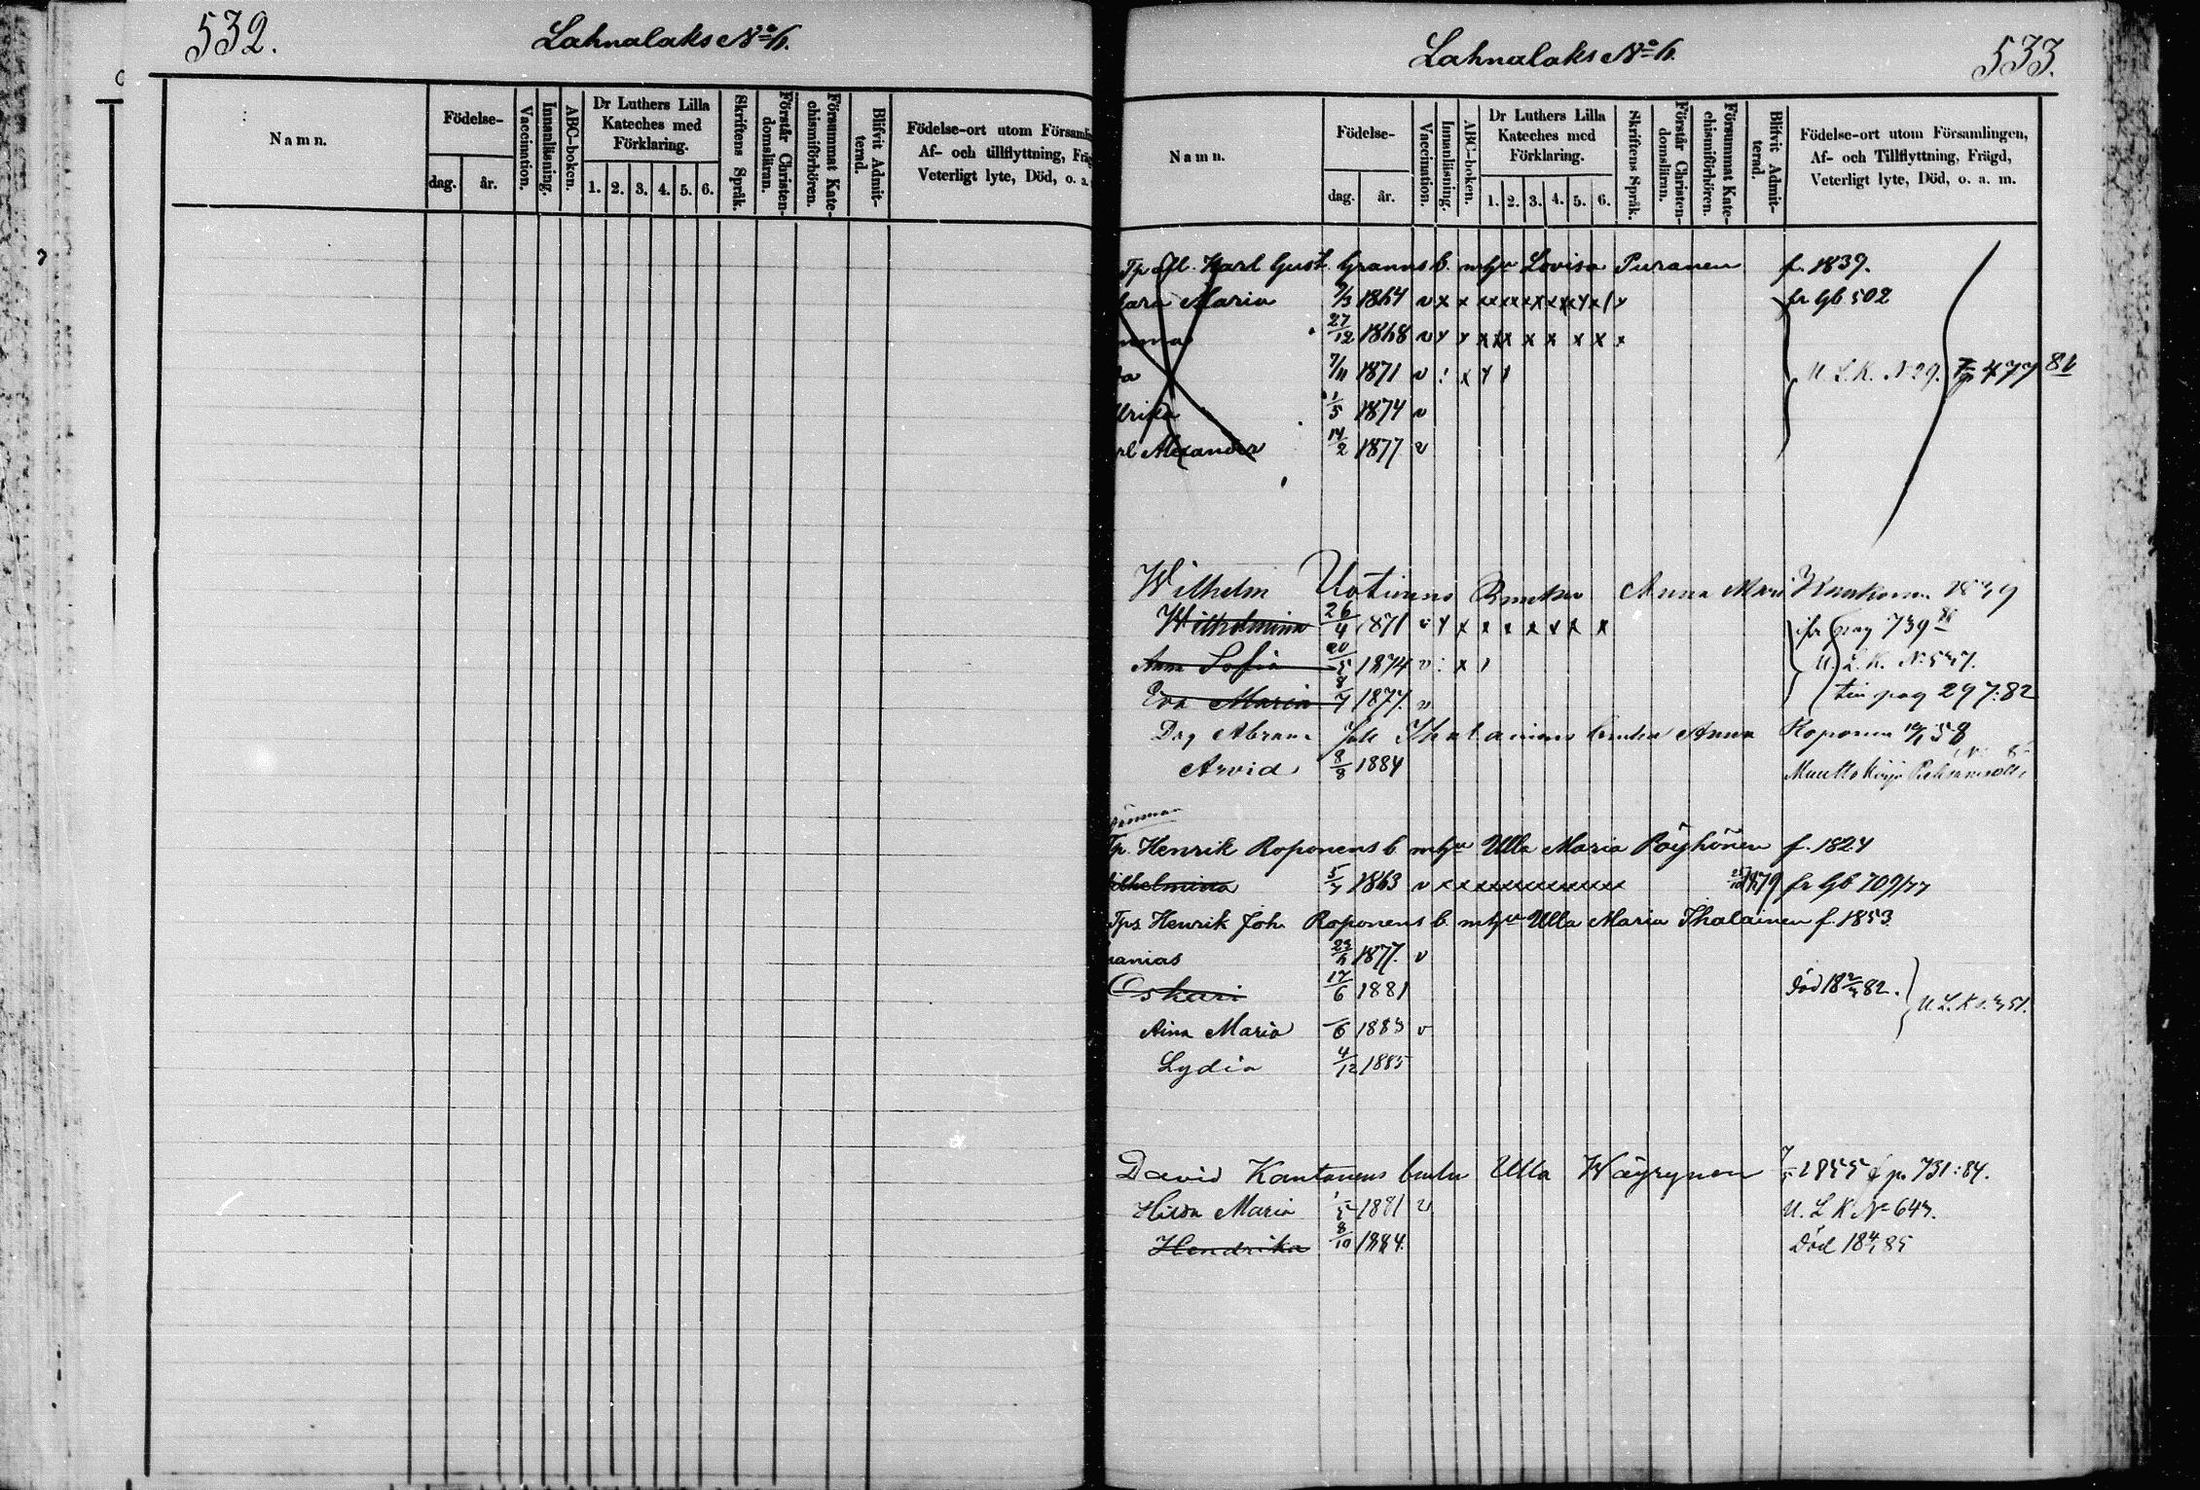 532.
Lahnalaks No 6.
Namn.
Födelse-
dag.
år.
Vaccination.
Innanläsning.
ABC-boken.
Dr Luthers Lilla
Kateches med
Förklaring.
1. 2. 3. 4. 5. 6.
Skriftens Språk.
Förstår Christen-
domsläran.
Försummat Kate-
chismiförhören.
Blifvit Admit-
terad.
Födelse-ort utom Församli
Af- och tillflyttning, Frä
Veterligt lyte, Död, o. a.
Lahnalaks No 6.
533.
Namn.
Födelse-
dag.
år.
Vaccination.
Innanläsning.
ABC-boken.
Dr Luthers Lilla
Kateches med
Förklaring.
1. 2. 3. 4. 5. 6.
Skriftens Språk.
Förstår Christen-
domsläran.
Försummat Kate-
chismiförhören.
Blifvit Admit-
terad.
Födelse-ort utom Församlingen,
Af- och Tillflyttning, Frägd,
Veterligt lyte, Död, o. a. m.
Karl Gust. Granns b. m hu Lovisa Puranen f. 1839.
Maria 1864 v x x x x x x x x x fr Gb 502
27/12 1868 v x x x x x x x x x
7/11 1871 v : x U. L. K. N 29. 477
1/5 1874 v
Alexander 14/2 1877 v
Wilhelm Anna
Wilhelmina 26/4 1871 v x x x x x x x x pag 739
Anna Sofia 20/5 1874 v : x U. L. K.
Eva Maria 1877. v pag 297:82
Abram Joh Ihalainens Anna Roponen 58
Arvid 8/8 1884 Muutto kirja
Henrik Roponens b. m hu Ulla Maria Pöyhönen f. 1824
ilhelmina 5/7 1863 v x x x x x x x x x x 1879 fr Gb 709/77
Tps Henrik Joh. Roponens b. m hu Ulla Maria Ihalainen f. 1853
anias 1877. v
Oskari 17/6 1881 död 82. U. L. K.
Aina Maria 6 1883 v
Lydia 4/12 1885
David Kantanens Ulla Wäyrynen 1855 p. 731:84.
Hilda Maria 1/5 1881 v U. L. K No 643.
Hendrika 8/10 1884. Död 18 85